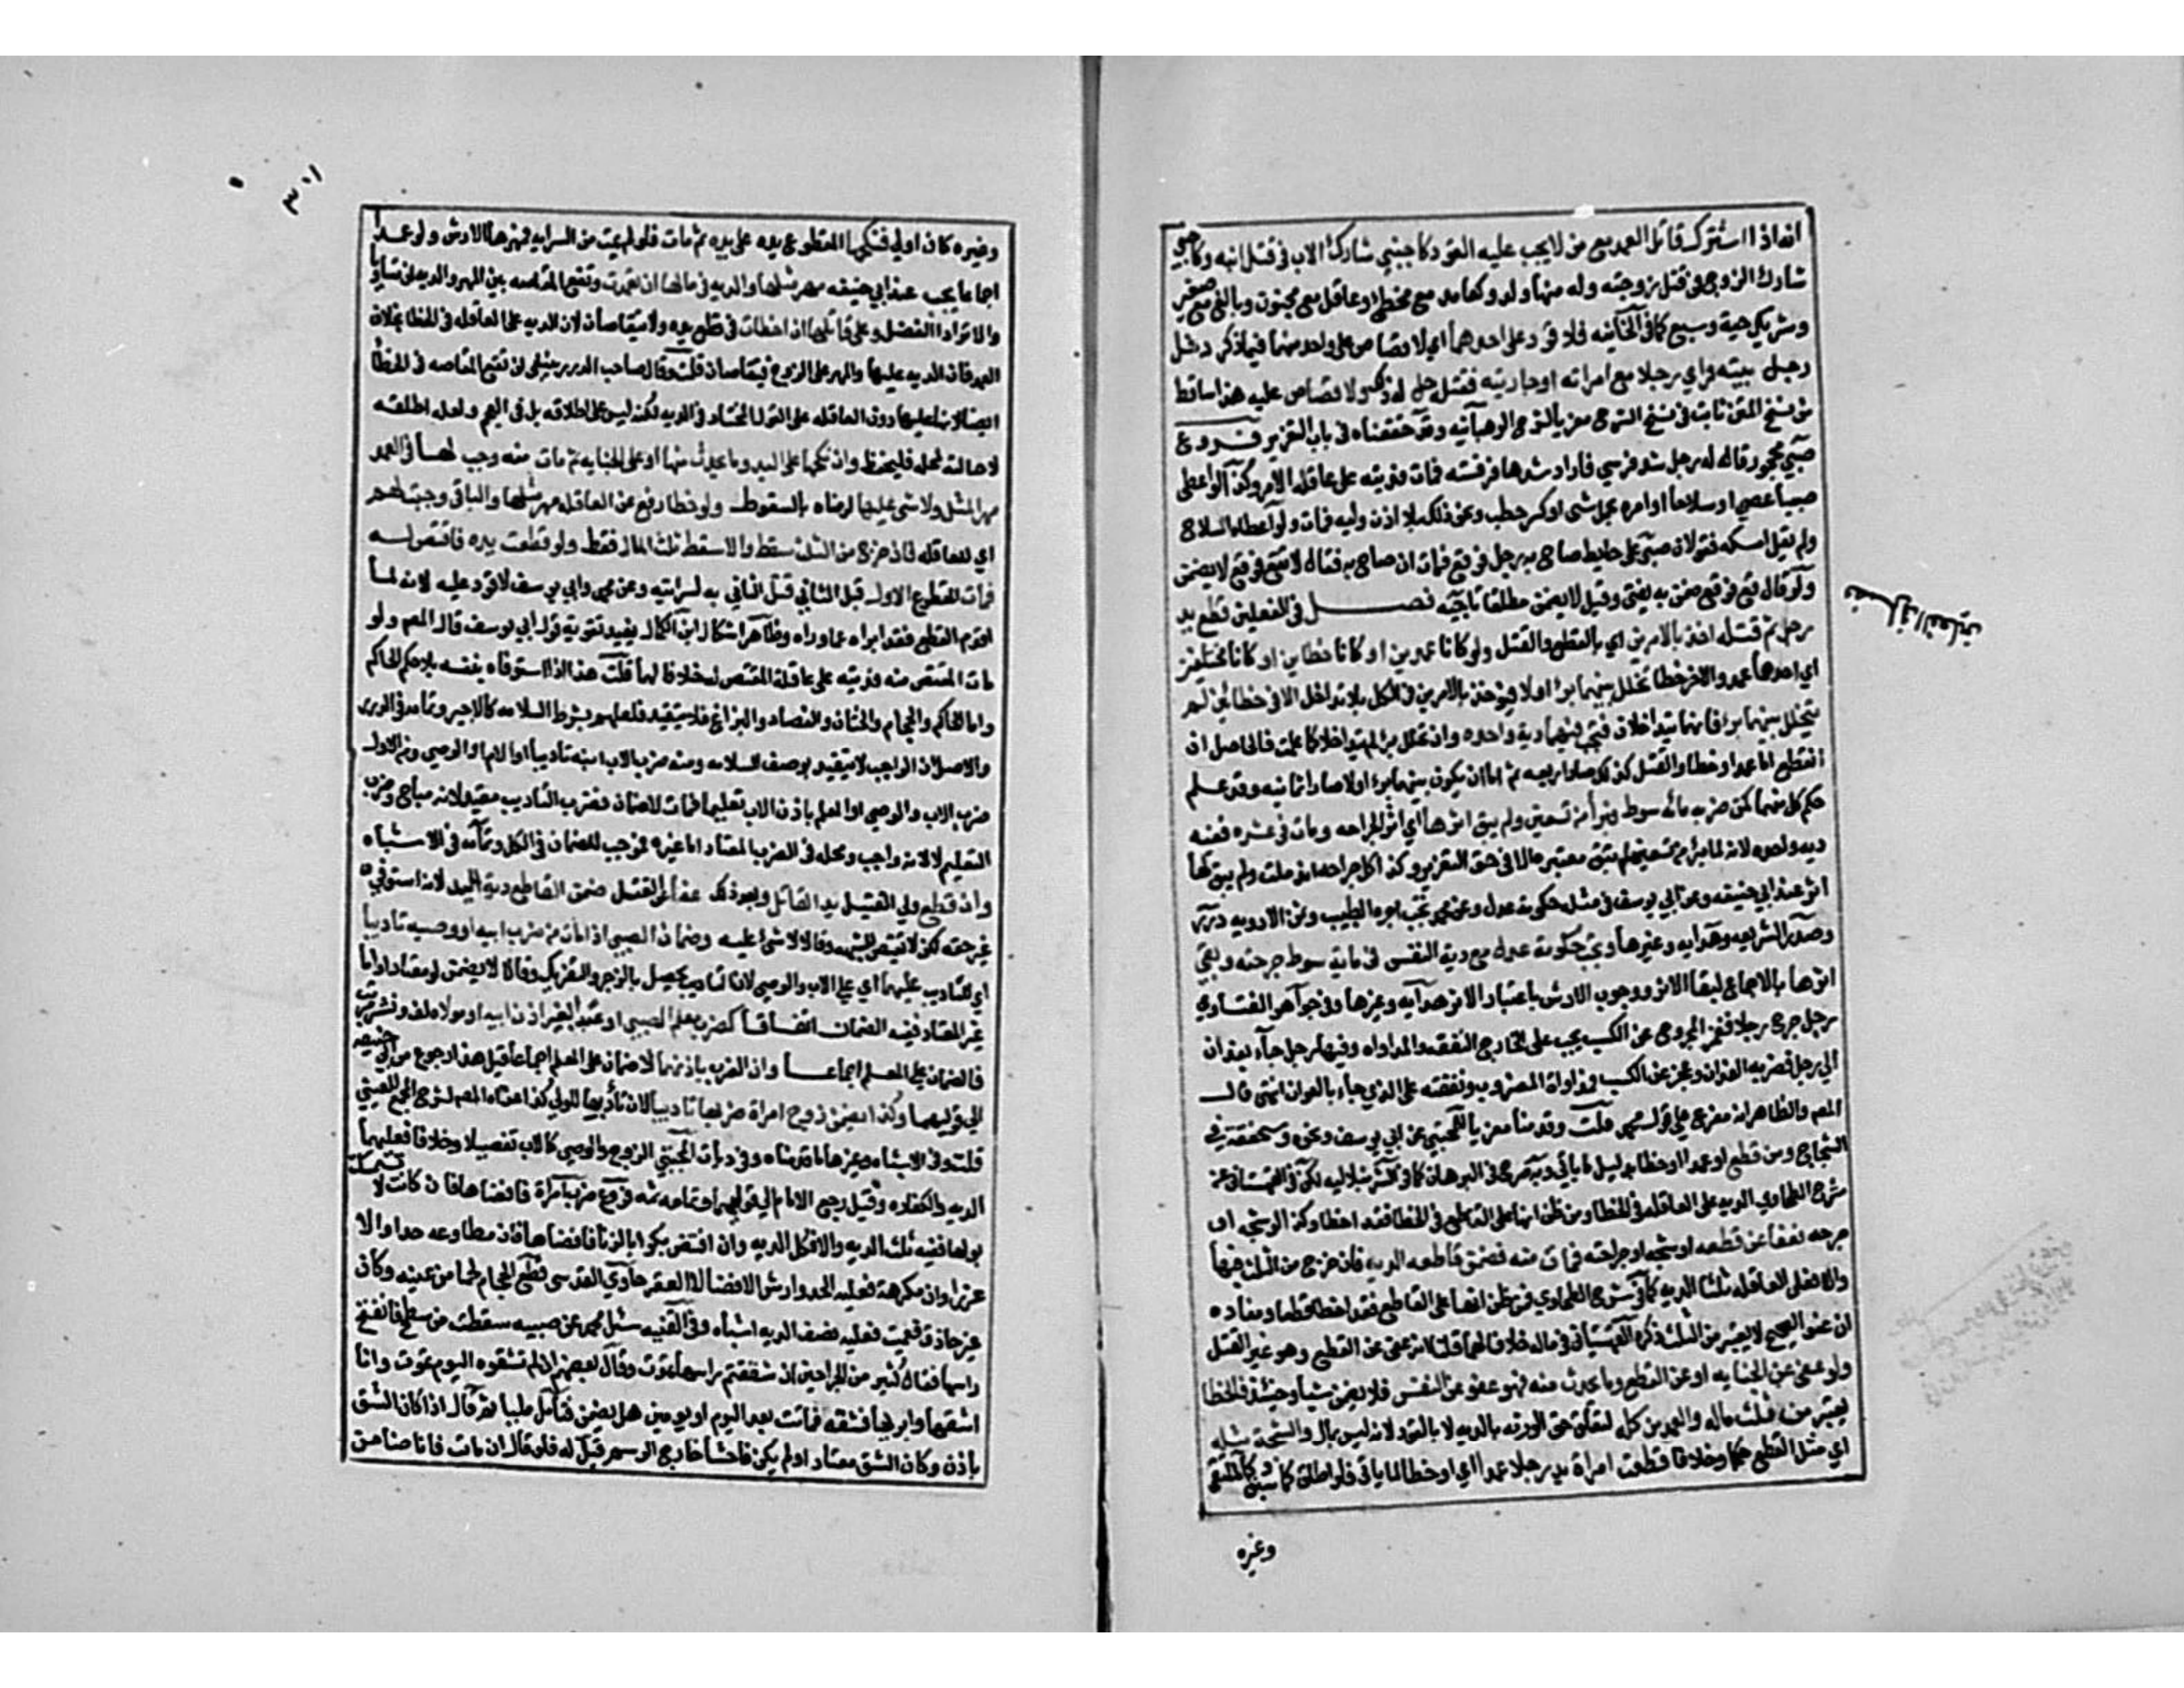 انه اذا اشترك قاتل العمد مع من لا يجب عليه القود كاجنبي شارك الاب في قتل ابنه وكاجنبي
شارك الزوج في قتل زوجته وله منها ولد وكعامد مع مخطئ وعاقل مع مجنون وبالغ مع صغير
وشريك حية وسبع كما في الخانيه فلا قود على احدهما اي لا قصاص على واحد منهما فيما ذكر دخل
رجل بيته فراي رجلا مع امراته او جاريته فقتله حل له ذلك ولا قصاص عليه هذا ساقط
من نسخ المتن ثابت في نسخ الشرح معزيا لشرح الوهبانيه وقد حققناه في باب التعزير فروع
صبي محجور قال له رجل شد فرسي فاراد شدها فرفسته فمات فديته على عاقلة الآمر وكذا لو اعطى
صبيا عصى او سلاحا او امره بحمل شئ او كسر حطب ونحو ذلك بلا اذن وليه فمات ولو اعطاه السلاح
ولم يقل امسكه فقولان صبي على حايط صاح به رجل فوقع فمات ان صاح به فقال لا تقع فوقع لا يضمن
ولو قال قع فوقع ضمن به يفتى وقيل لا يضمن مطلقا تاجيه فصل في الفعلين قطع يد
رجل ثم قتله اخذ بالامرين اي بالقطع والقتل ولو كانا عمدين او كانا خطاين او كانا مختلفين
اي احدهما عمد والاخر خطا تخلل بينهما برؤ او لا فيؤخذ بالامرين في الكل بلا تداخل الا في خطائين لم
يتخلل بينهما برؤ فانهما يتداخلان فتجب فيهما دية واحده وان تخلل برؤ لم يتداخلا كما علمت فالحاصل ان
القطع اما عمد او خطا والقتل كذلك صار اربعه ثم اما ان يكون بينهما برؤ او لا صار ثمانيه وقد علم
حكم كل منها كمن ضربه مائه سوط فبرأ من تسعين ولم يبق اثرها اي اثر الجراحه ومات من عشره ففيه
ديه واحده لانه لما برئ من تسعين لم تبق معتبره الا في حق التعزير وكذا كل جراحه اندملت ولم يبق لها
اثر عند ابي حنيفه وعن ابي يوسف في مثله حكومة عدل وعن محمد تجب اجرة الطبيب وثمن الادويه درر
وصدر الشريعه وهدايه وغيرها وتجب حكومة عدل مع دية النفس في مايه سوط جرحته وبقي
اثرها بالاجماع لبقا الاثر ووجوب الارش باعتبار الاثر هدايه وغيرها وفي جواهر الفتاوي
رجل جرح رجلا فعجز المجروح عن الكسب يجب على الجارح النفقه والمداواه وفيها رجل جاء بعوان
الى رجل فضربه العوان وعجز عن الكسب فمداواة المضروب ونفقته على الذي جاء بالعوان انتهى قال
المصـ والظاهر انه مفرع على قول محمد قلت وقدمنا معزيا للمجتبي عن ابي يوسف ونحوه وسنحققه في
الشجاج ومن قطع اي عمدا او خطا بدليل ما ياتي وبه صرح في البرهان كما في الشرنبلاليه لكن في القهستاني عن
شرح الطحاوي الديه على العاقله في الخطا ومن ظن انها على القاطع في الخطا فقد اخطا وكذا لو شجه او
جرحه فعفا عن قطعه او شجه او جراحته فمات منه ضمن قاطعه الديه فان خرج من الثلث فبها
والا فعلى العاقله ثلثا الديه كما في شرح الطحاوي فمن ظن انها على القاطع فقد اخطا قطعا ومفاده
ان عفو الصحيح لا يعتبر من الثلث ذكره القهستاني في ماله خلافا لهما قلنا انه عفى عن القطع وهو غير القتل
ولو عفى عن الجنايه او عن القطع وما يحدث منه فهو عفو عن النفس فلا يضمن شيا وحينئذ فالخطا
يعتبر من ثلث ماله والعمد من كله لتعلق حق الورثه بالديه لا بالقود لانه ليس بمال والشجة مثله
اي مثل القطع حكما وخلافا قطعت امراة يد رجل عمدا اي او خطا لما ياتي فلو اطلق كما سبق وكالملتقى
وغيره
فصل في الفعلين
٣٠١
وغيره كان اولى فنكحها المقطوع يده على يده ثم مات فلو لم يمت من السرايه فمهرها الارش ولو عمدا
اجماعا يجب عند ابي حنيفه مهر مثلها والديه في مالها ان تعمدت وتقع المقاصه بين المهر والديه ان تساويا
والا ترادا الفضل وعلى عاقلتها ان اخطات في قطع يده ولا يتقاصان لان الديه على العاقله في الخطا بخلاف
العمد فان الديه عليها والمهر على الزوج فيتقاصان قلت وقال صاحب الدرر ينبغي ان تقع المقاصه في الخطا
ايضا لانها عليها دون العاقله على القول المختار في الديه لكنه ليس على اطلاقه بل في العجم ولعله اطلقه
لاحالته لمحله فليحفظ وان نكحها على اليد وما يحدث منها او على الجنايه ثم مات منه وجب لها في العمد
مهر المثل ولا شئ عليها لرضاه بالسقوط ولو خطا رفع عن العاقله مهر مثلها والباقي وصية لهم
اي للعاقله فان خرج من الثلث سقط والا سقط ثلث المال فقط ولو قطعت يده فاقتص له
فمات المقطوع الاول قبل الثاني قتل الثاني به لسرايته وعن محمد وابي يوسف لا قود عليه لانه لما
اقدم القطع فقد ابراه عما وراه وظاهر اشكال ابن الكمال يفيد تقوية قول ابي يوسف قال المصـ ولو
مات المقتص منه فديته على عاقلة المقتص له خلافا لهما قلت هذا اذا استوفاه بنفسه بلا حكم الحاكم
واما الحاكم والحجام والختان والفصاد والبزاغ فلا يتقيد فعلهم بشرط السلامه كالاجير وتمامه في الدرر
والاصل ان الواجب لا يتقيد بوصف السلامه ومنه ضرب الاب ابنه تاديبا او الام او الوصي ومن الاول
ضرب الاب والوصي او المعلم باذن الاب تعليما فمات للضمان فضرب التاديب مقيد لانه مباح وضرب
التعليم لا لانه واجب ومحله في الضرب المعتاد اما غيره فموجب للضمان في الكل وتمامه في الاشباه
وان قطع ولي القتيل يد القاتل وبعد ذلك عفا عن القتل ضمن القاطع دية اليد لانه استوفى
غير حقه لكن لا يقتص للشبهه وقالا لا شئ عليه وضمان الصبي اذا مات من ضرب ابيه او وصيه تاديبا
اي للتاديب عليهما اي على الاب والوصي لان التاديب يحصل بالزجر والتعريك وقالا لا يضمن لو معتادا واما
غير المعتاد ففيه الضمان اتفاقا كضرب معلم الصبي او عبد بغير اذن ابيه او مولاه لف ونشر مرتب
فالضمان على المعلم اجماعا وان الضرب باذنهما لا ضمان على المعلم اجماعا قيل هذا رجوع من ابي حنيفه
الى قولهما وكذا يضمن زوج امراة ضربها تاديبا لان تاديبها للولي كذا عزاه المصـ لشرح المجمع للعيني
قلت وفي الاشباه وغيرها كما قدمناه وفي ديات المجتبي الزوج والوصي كالاب تفصيلا وخلافا فعليهما
الديه والكفاره وقيل رجع الامام الى قولهما وتمامه ثمه فروع ضرب امراة فافضاها فان كانت لا تستمسك
بولها ففيه ثلث الديه والا فكل الديه وان افتض بكرا بالزنا فافضاها فان مطاوعه حدا ولا
غرم وان مكرهة فعليه الحد وارش الافضا لا العقر حاوي القدسي قطع الحجام لحما من عينه وكان
غير حاذق فعميت فعليه نصف الديه اشباه وفي القنيه سئل محمد عن صبيه سقطت من سطح فانفتح
راسها فقال كثير من الجراحين ان شققتم راسها تموت وقال بعضهم ان لم تشقوه اليوم تموت وانا
اشقها وابريها فشقه فماتت بعد اليوم او يومين هل يضمن فتامل مليا ثم قال لا اذا كان الشق
باذن وكان الشق معتادا ولم يكن فاحشا خارج الرسم قيل له فلو قال ان ماتت فانا ضامن